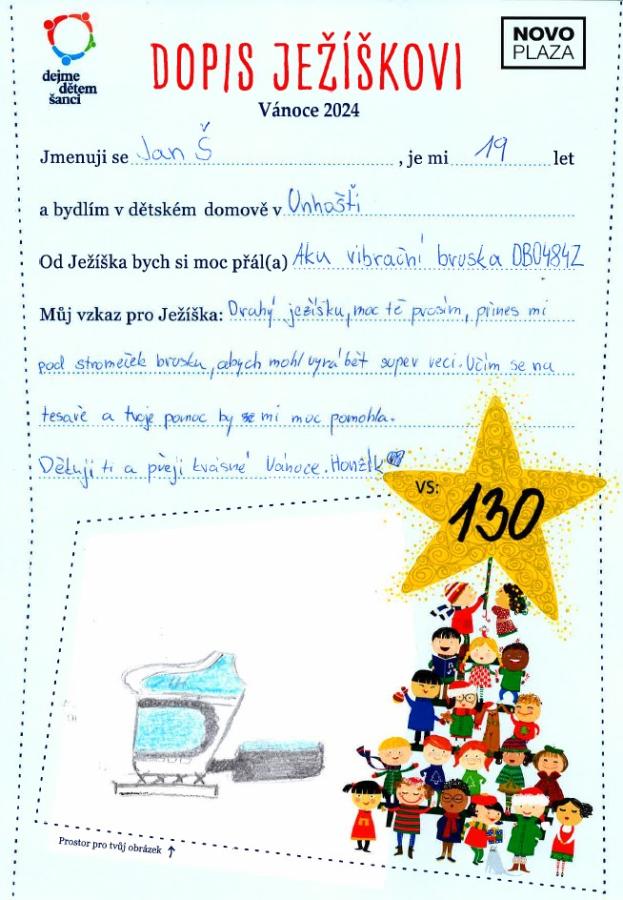 dejme
dětem
šanci
NOVO
PLAZA
DOPIS JEŽÍŠKOVI
Vánoce 2024
Jmenuji se Jan Š , je mi 19 let
a bydlím v dětském domově v Unhošti
Od Ježíška bych si moc přál(a) Aku vibrační bruska DBO484Z
Můj vzkaz pro Ježíška: Drahý ježíšku, moc tě prosím, přines mi
pod stromeček brusku, abych mohl vyrábět super veci. Učím se na
tesaře a tvoje pomoc by mi moc pomohla.
Děkuji ti a přeji krásné Vánoce. Honzík
VS:
130
Prostor pro tvůj obrázek ↑